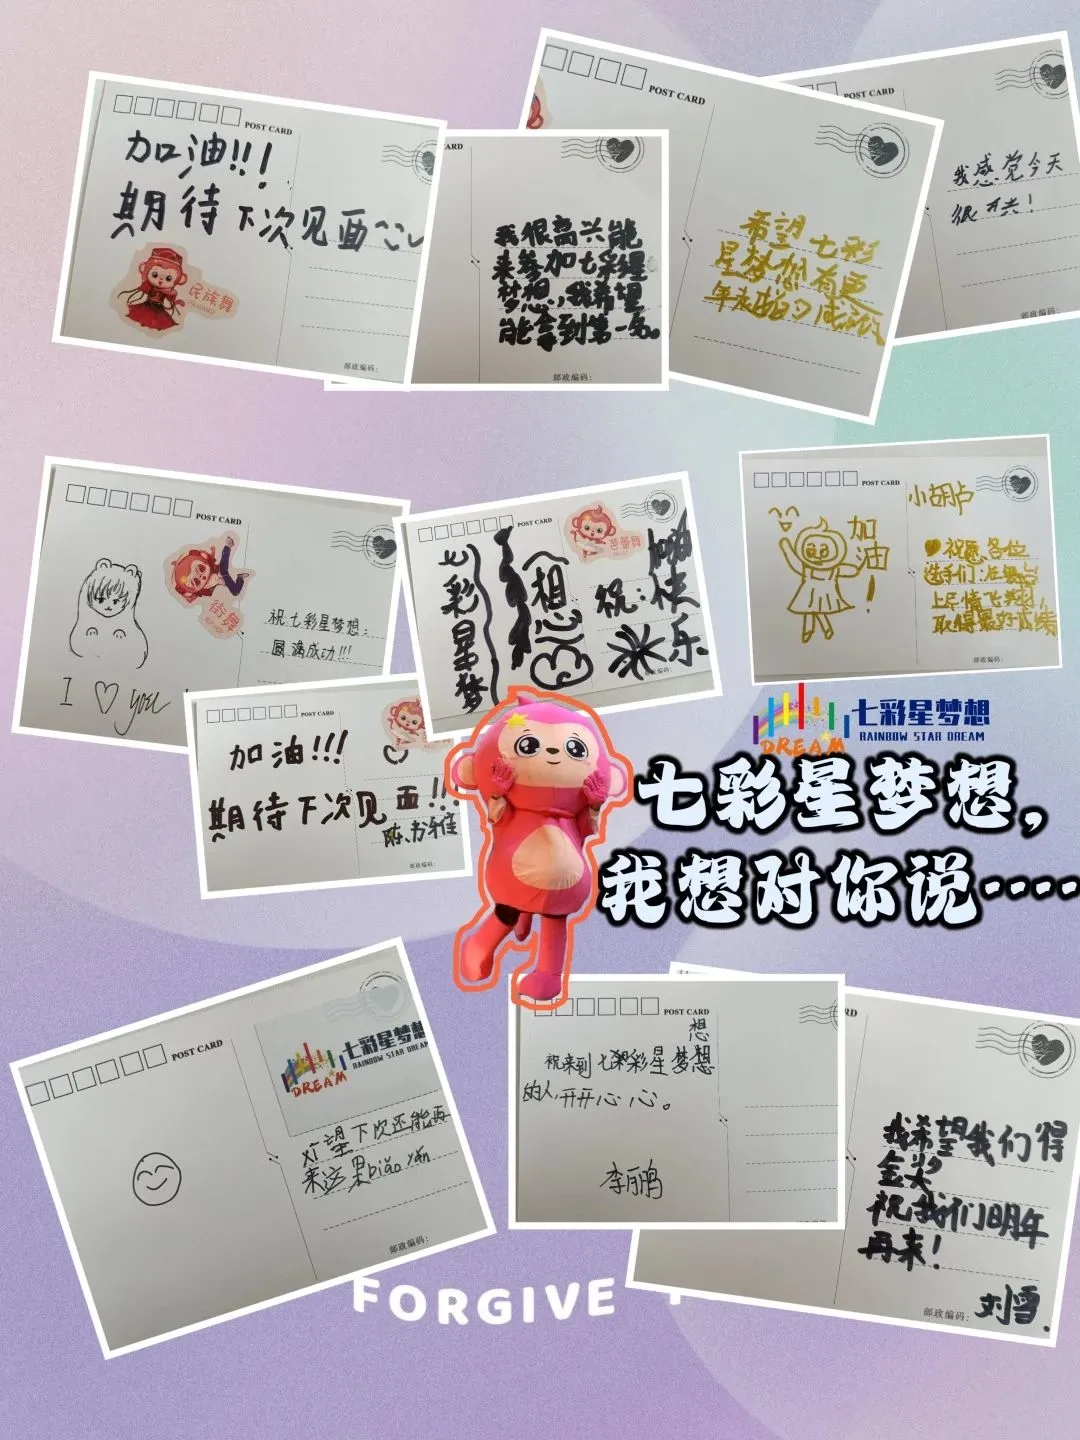 POST CARD
加油!!!
期待下次见面
民族舞
邮政编码:
CARD
我很高兴能
来参加七彩星
梦想,我希望
能拿到第一名。
邮政编码:
POST CARD
希望七彩
星梦想有更
POST CARD
我感觉今天
很开心!
邮政编码:
POST CARD
街舞
祝七彩星梦想:
圆满成功!!!
I ♡ you
POST CARD
七彩星梦
想
芭蕾舞
祝:
快
乐
邮政编码:
POST CARD
加
油
!
小葫芦
祝愿各位
选手们:在舞台
上尽情飞翔
取得最好成绩
邮政编码:
POST CARD
加油!!!
期待下次见面!!!
陈书雅
邮政编码:
七彩星梦想
RAINBOW STAR DREAM
DREAM
七彩星梦想,
我想对你说……
POST CARD
七彩星梦想
RAINBOW STAR DREAM
DREAM
望下次还能再
来这里biǎo yǎn
邮政编码:
POST CARD
想
祝来到七彩星梦想
的人,开开心心。
李丽鹏
RD
我希望我们得
金奖
祝我们明年
再来!
邮政编码:
刘雪.
FORGIVE